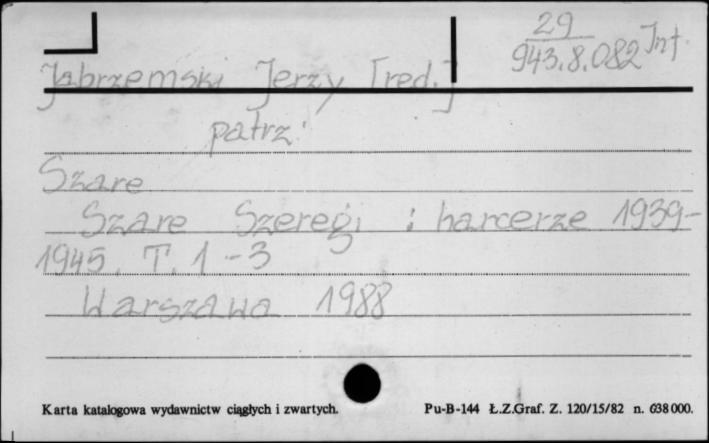 29
943.8.082 Inf.
Jabrzemski Jerzy [red.]
patrz:
Szare
Szare Szeregi : harcerze 1939-
1945. T. 1-3
Warszawa 1988
Karta katalogowa wydawnictw ciągłych i zwartych.
Pu-B-144 Ł.Z.Graf. Z. 120/15/82 n. 638000.